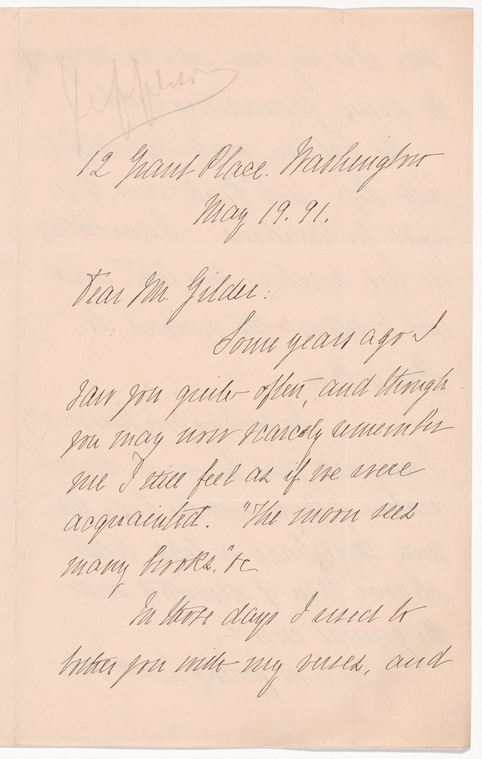 Jeppleson
12 Grant Place. Washington
May 19. 91.
Dear Mr. Gilder:
Some years ago I
saw you quite often, and though
you may now scarcely remember
me I still feel as if we were
acquainted. "The moon sees
many brooks," &c
In those days I used to
bother you with my verses, and